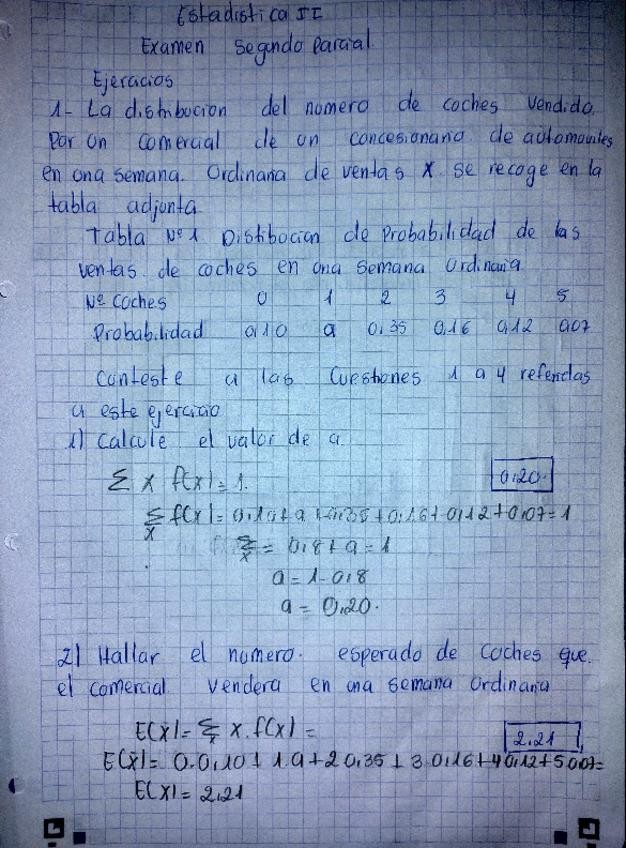 Estadistica II
Examen Segundo Parcial
Ejercicios
1- La distribucion del numero de coches Vendido.
Por un comercial de un concesionario de automoviles
en una semana. Ordinaria de ventas X se recoge en la
tabla adjunta
Tabla Nº 1 Distribucion de Probabilidad de las
ventas de coches en una semana Ordinaria
Nº Coches 0 1 2 3 4 5
Probabilidad 0,10 a 0,35 0,16 0,12 0,07
Conteste a las Cuestiones 1 a 4 referidas
a este ejercicio
1) Calcule el valor de a.
Σ x f(x) = 1. 0,20.
Σ f(x) = 0,10 + a + 0,35 + 0,16 + 0,12 + 0,07 = 1
x
Σ = 0,8 + a = 1
x
a = 1 - 0,8
a = 0,20.
2) Hallar el numero. esperado de coches que.
el comercial vendera en una semana Ordinaria
E(x) = Σ x . f(x) =
x
2,21
E(x) = 0.0,10 + 1.a + 2 0,35 + 3 0,16 + 4 0,12 + 5 0,07 =
E(x) = 2,21